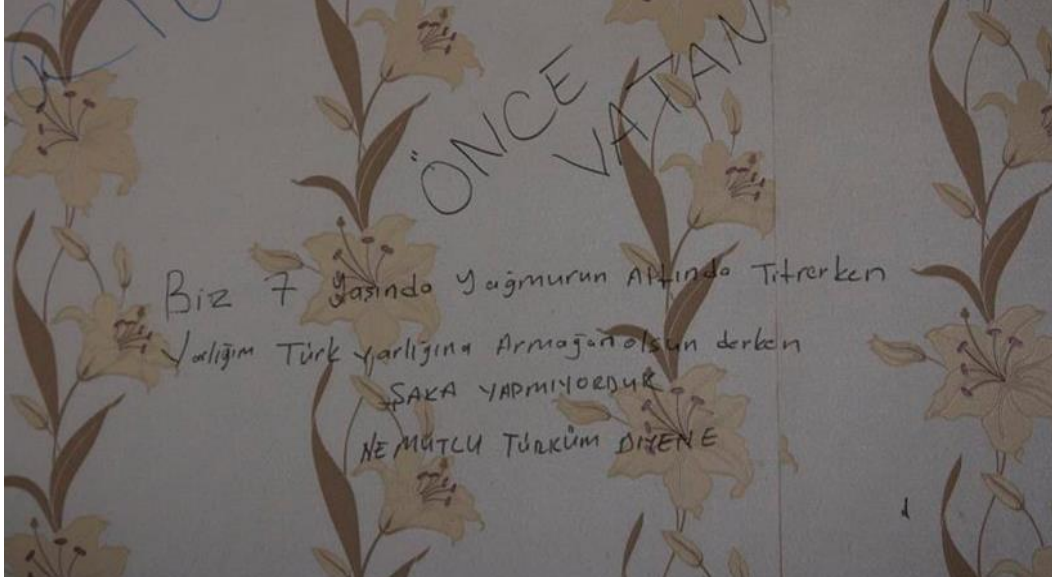 ÖNCE
VATAN
Biz 7 Yasında Yağmurun Altında Titrerken
Varlığım Türk varlığına Armağan olsun derken
ŞAKA YAPMIYORDUK
NE MUTLU TÜRKÜM DİYENE